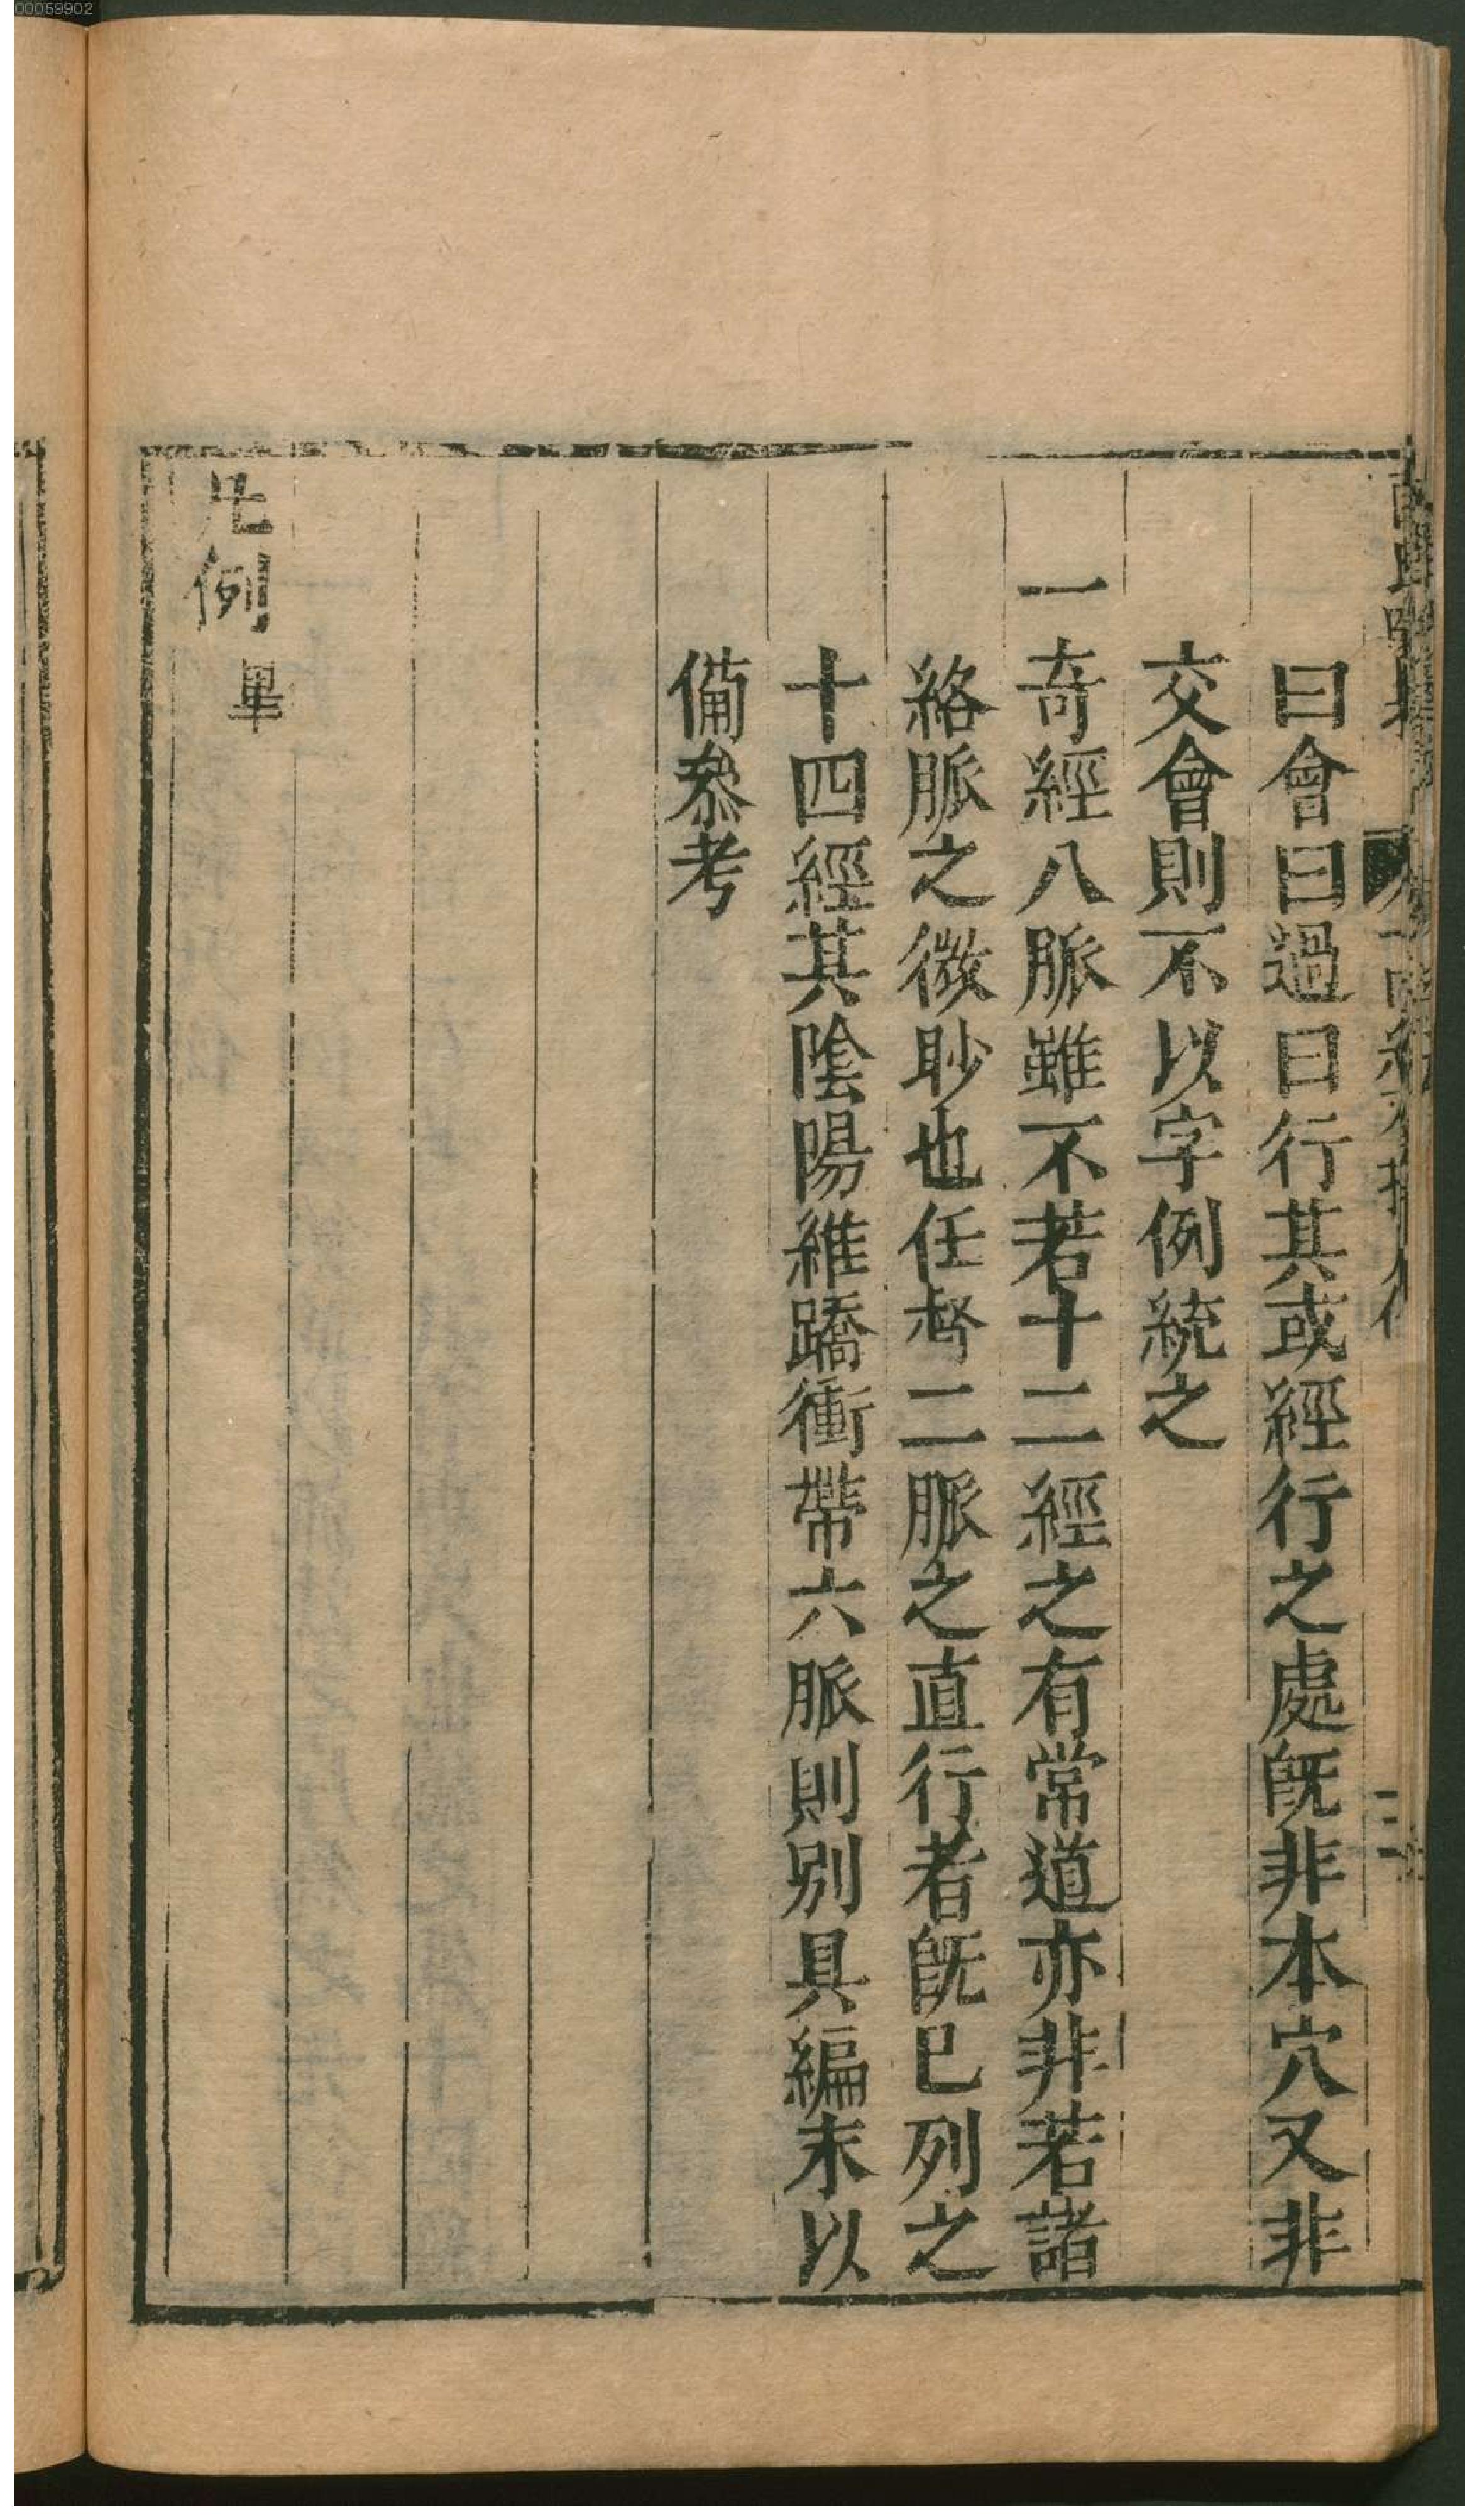 00059902
曰會曰過曰行其或經行之處旣非本穴又非
交會則不以字例統之
一奇經八脈雖不若十二經之有常道亦非若諸
絡脈之微眇也任督二脈之直行者旣已列之
十四經其陰陽維蹻衝帶六脈則別具編末以
備叅考
凡例畢